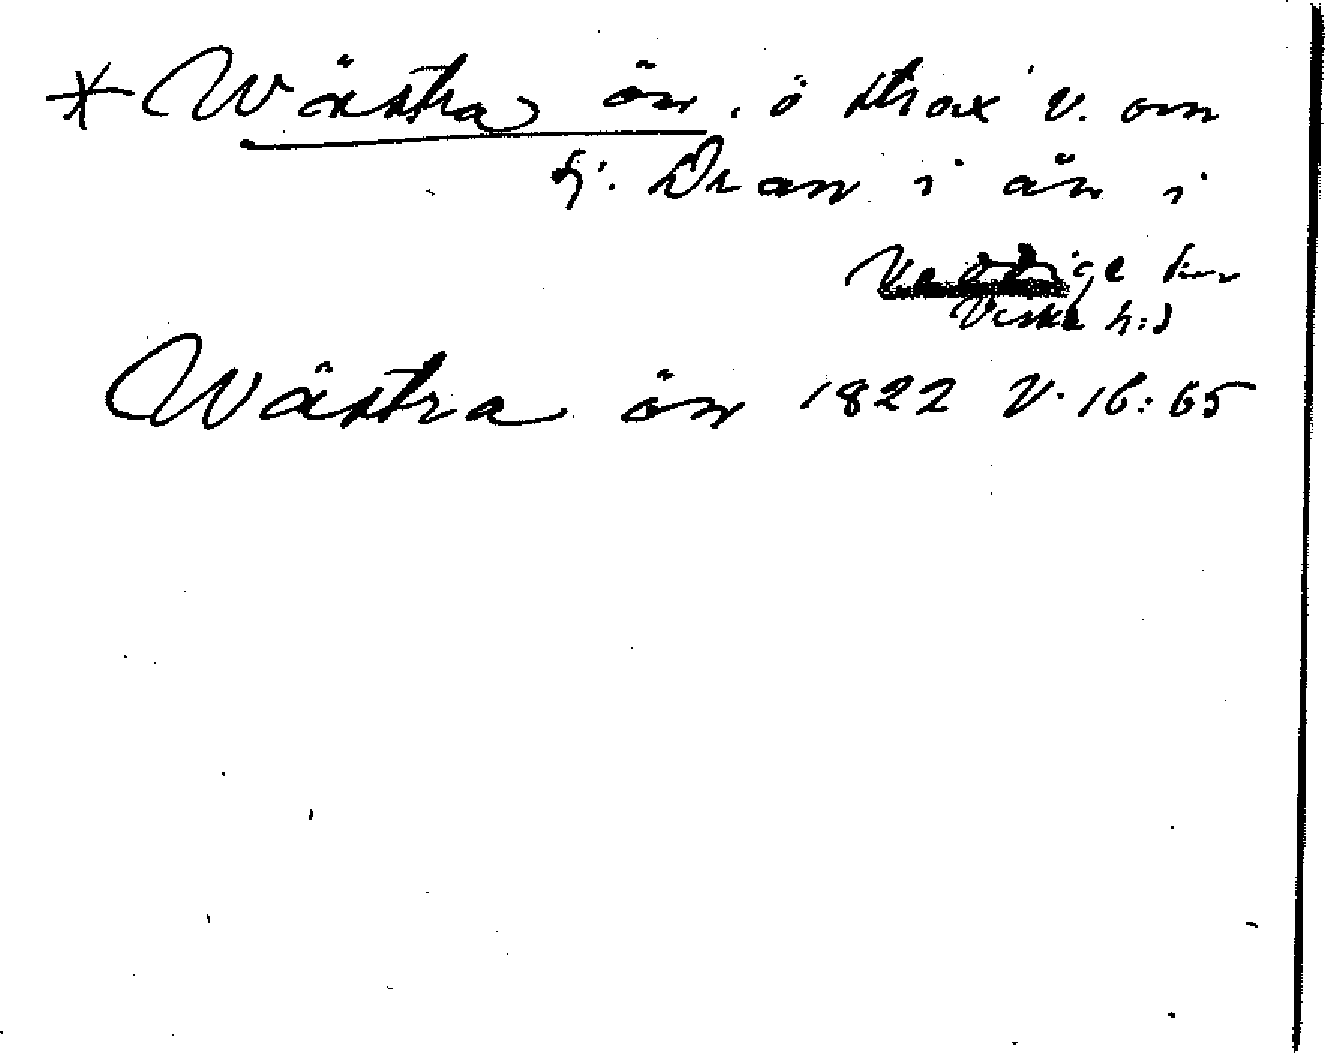 * Wästra ön, ö strax v. om
fj. Dran i ån i
Veddige sn
Viske h:d
Wästra ön 1822 V. 16:65